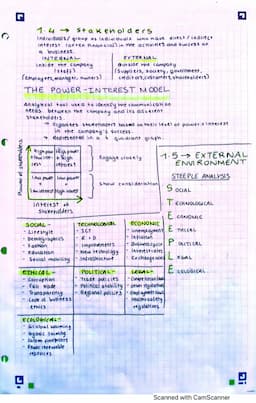 1.4 → Stakeholders
Individuals/group of individuals who have direct/indirect
interest (often financial) in the activities and success of
a business.
INTERNAL
inside the company
(staff)
(Employees, manager, owners)
EXTERNAL
outside the company
(Suppliers, society, government,
creditors, customers, shareholders)
THE POWER-INTEREST MODEL
Analytical tool used to identify the communication
needs between the company and its different
stakeholders.
→ organises stakeholders based on their level of power & interest
in the company's success.
→ represented in a 4 quadrant graph.
Power of stakeholders
High power
low
High power
high
interest
Engage closely
low power
low power
Show consideration
Interest of
Stakeholders
1.5 → EXTERNAL
ENVIRONMENT
STEEPLE ANALYSIS
SOCIAL
TECHNOLOGICAL
ECONOMIC
ETHICAL
POLITICAL
LEGAL
ECOLOGICAL
SOCIAL-
- Lifestyle
- Demographics
- Fashion
- Education
- Social mobility
TECHNOLOGICAL
- ICT
- R+D
- Improvements
- New technology
- Infrastructure
ECONOMIC
- Unemployment
- Inflation
- Business cycle
- Interest rates
- Exchange rates
ETHICAL -
- Corruption
- Fair trade
- Transparency
- Code of business
ethics
POLITICAL-
- Trade policies
- Political stability
- Regional policies
LEGAL-
- Competition law
- Health safety
regulations
ECOLOGICAL-
- Global warming
- Carbon footprints
resources
Scanned with CamScanner